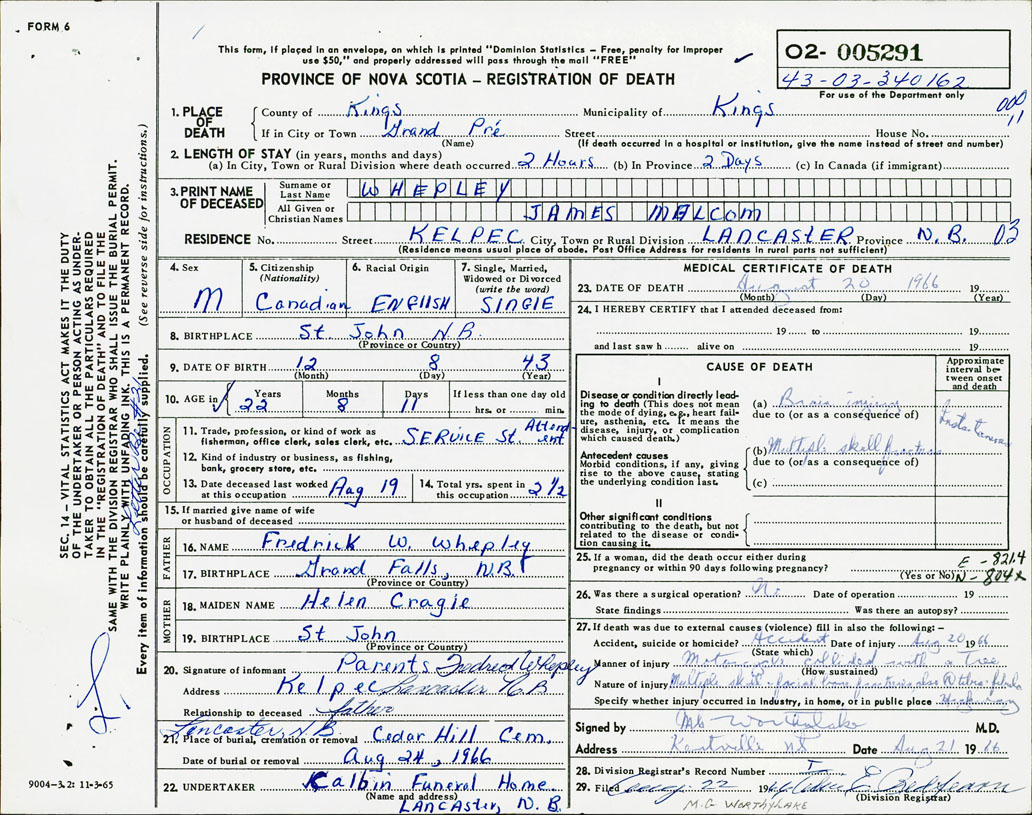 FORM 6
This form, if placed in an envelope, on which is printed "Dominion Statistics – Free, penalty for improper
use $50," and properly addressed will pass through the mail "FREE"
PROVINCE OF NOVA SCOTIA – REGISTRATION OF DEATH
02- 005291
43-03-340162
For use of the Department only
1. PLACE OF DEATH
County of Kings Municipality of Kings
If in City or Town Grand Pré Street House No.
(Name) (If death occurred in a hospital or institution, give the name instead of street and number)
2. LENGTH OF STAY (in years, months and days)
(a) In City, Town or Rural Division where death occurred 2 Hours (b) In Province 2 Days (c) In Canada (if immigrant)
3. PRINT NAME OF DECEASED
Surname or Last Name WHEPLEY
All Given or Christian Names JAMES MALCOM
RESIDENCE No. Street KELPEC City, Town or Rural Division LANCASTER Province N.B. 03
(Residence means usual place of abode. Post Office Address for residents in rural parts not sufficient)
4. Sex M
5. Citizenship (Nationality) Canadian
6. Racial Origin ENGlISH
7. Single, Married, Widowed or Divorced (write the word) SINGlE
8. BIRTHPLACE St John N.B.
(Province or Country)
9. DATE OF BIRTH 12 8 43
(Month) (Day) (Year)
10. AGE in Years 22 Months 8 Days 11 If less than one day old hrs. or min.
OCCUPATION
11. Trade, profession, or kind of work as fisherman, office clerk, sales clerk, etc. SERVICE St. Attendent
12. Kind of industry or business, as fishing, bank, grocery store, etc.
13. Date deceased last worked at this occupation Aug 19
14. Total yrs. spent in this occupation 2 1/2
15. If married give name of wife or husband of deceased
FATHER
16. NAME Fredrick W. Whepley
17. BIRTHPLACE Grand Falls, N.B.
(Province or Country)
MOTHER
18. MAIDEN NAME Helen Cragie
19. BIRTHPLACE St John
(Province or Country)
20. Signature of informant Parents Fredrick W Whepley
Address Kelpec Lancaster N.B
Relationship to deceased father
Lancaster, N.B.
21. Place of burial, cremation or removal Cedar Hill Cem.
Date of burial or removal Aug 24, 1966
22. UNDERTAKER Kalbin Funeral Home
(Name and address) LANCASTER, N.B.
MEDICAL CERTIFICATE OF DEATH
23. DATE OF DEATH August 20 1966 19
(Month) (Day) (Year)
24. I HEREBY CERTIFY that I attended deceased from:
19 to 19
and last saw h alive on 19
CAUSE OF DEATH
Approximate interval between onset and death
I
Disease or condition directly leading to death (This does not mean the mode of dying, e.g., heart failure, asthenia, etc. It means the disease, injury, or complication which caused death.)
(a) Brain injury
due to (or as a consequence of)
Antecedent causes
Morbid conditions, if any, giving rise to the above cause, stating the underlying condition last.
(b) Multiple skull fractures
due to (or as a consequence of)
(c)
II
Other significant conditions contributing to the death, but not related to the disease or condition causing it.
25. If a woman, did the death occur either during pregnancy or within 90 days following pregnancy? (Yes or No)
E - 8214
N - 804x
26. Was there a surgical operation? No Date of operation 19
State findings Was there an autopsy?
27. If death was due to external causes (violence) fill in also the following:–
Accident, suicide or homicide? Accident Date of injury Aug 20 1966
(State which)
Manner of injury Motorcycle collided with a Tree
(How sustained)
Nature of injury Multiple skull - facial bone fractures, also R tibia - fibula
Specify whether injury occurred in industry, in home, or in public place
Signed by MG Worthylake M.D.
Address Kentville NS Date Aug 21 1966
28. Division Registrar's Record Number
29. Filed Aug 22 19
(Division Registrar)
M.G WORTHYLAKE
SEC. 14 – VITAL STATISTICS ACT MAKES IT THE DUTY
OF THE UNDERTAKER OR PERSON ACTING AS UNDER-
TAKER TO OBTAIN ALL THE PARTICULARS REQUIRED
IN THE "REGISTRATION OF DEATH" AND TO FILE THE
SAME WITH THE DIVISION REGISTRAR WHO SHALL ISSUE THE BURIAL PERMIT.
WRITE PLAINLY WITH UNFADING INK. THIS IS A PERMANENT RECORD.
Every item of information should be carefully supplied. (See reverse side for instructions.)
9004-3.2: 11-3-65